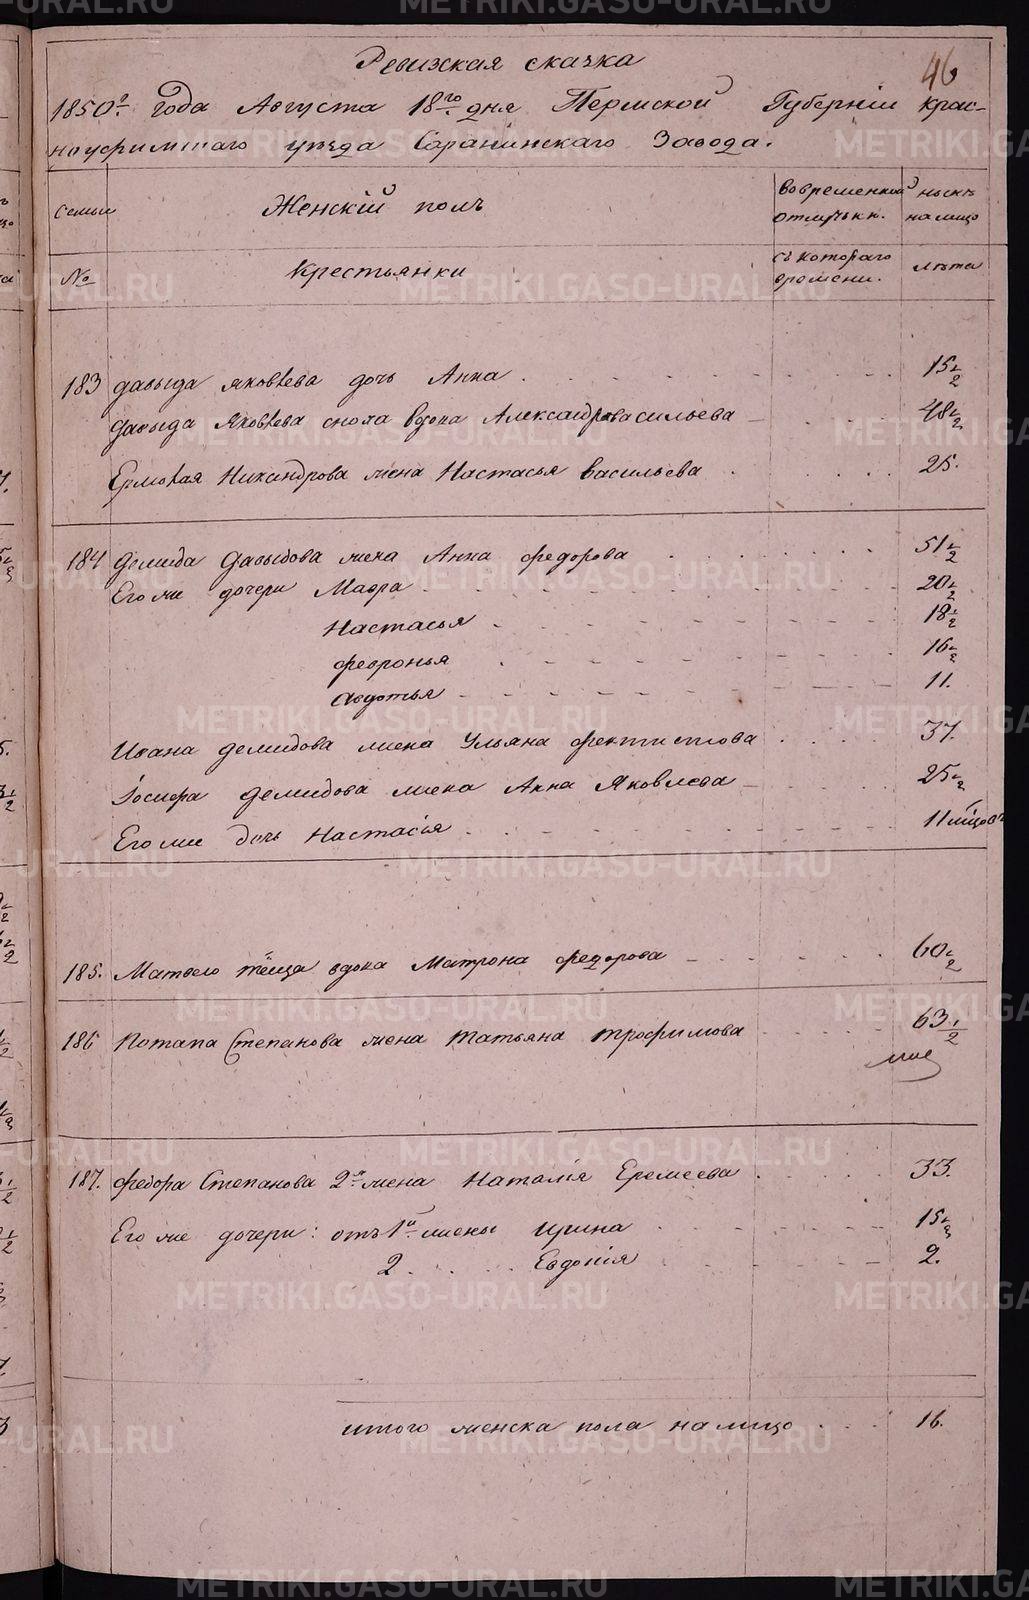 46
Ревизская скачка
1850го года Августа 18го дня Пермской Губернiи Крас-
ноуфимшаго уѣзда Саранинскаго Завода.
семьи Женскiй полъ во временной отлучьки. нынѣ на лицо
№ Крестьянки съ котораго времени. лѣта
183 Давыда Яковлева дочь Анна 15 1/2
Давыда Яковлева сноха вдова Александра Васильева 48 1/2
Ермолая Никандрова жена Настасья Васильева 25.
184 Демида Давыдова жена Анна Федорова 51 1/2
Его же дочери Мавра 20 1/2
Настасья 18 1/2
Февронья 16 1/2
Авдотья 11.
Ивана Демидова жена Ульяна Фектистова 37.
Iосифа Демидова жена Анна Яковлева 25 1/2
Его же дочь Настасiя 11 мѣцовъ
185. Матвею тёща вдова Матрона Федорова 60 1/2
186 Потапа Степанова жена Татьяна Трофимова 63 1/2
187. Федора Степанова 2я жена Наталiя Еремеева 33.
Его же дочери: отъ 1й жены Ирина 15 1/2
2 Евдокiя 2.
итого женска пола на лицо 16.
METRIKI.GASO-URAL.RU